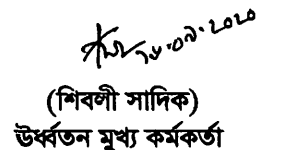 ১৮.০৯.২০২০
(শিবলী সাদিক)
ঊর্ধ্বতন মুখ্য কর্মকর্তা